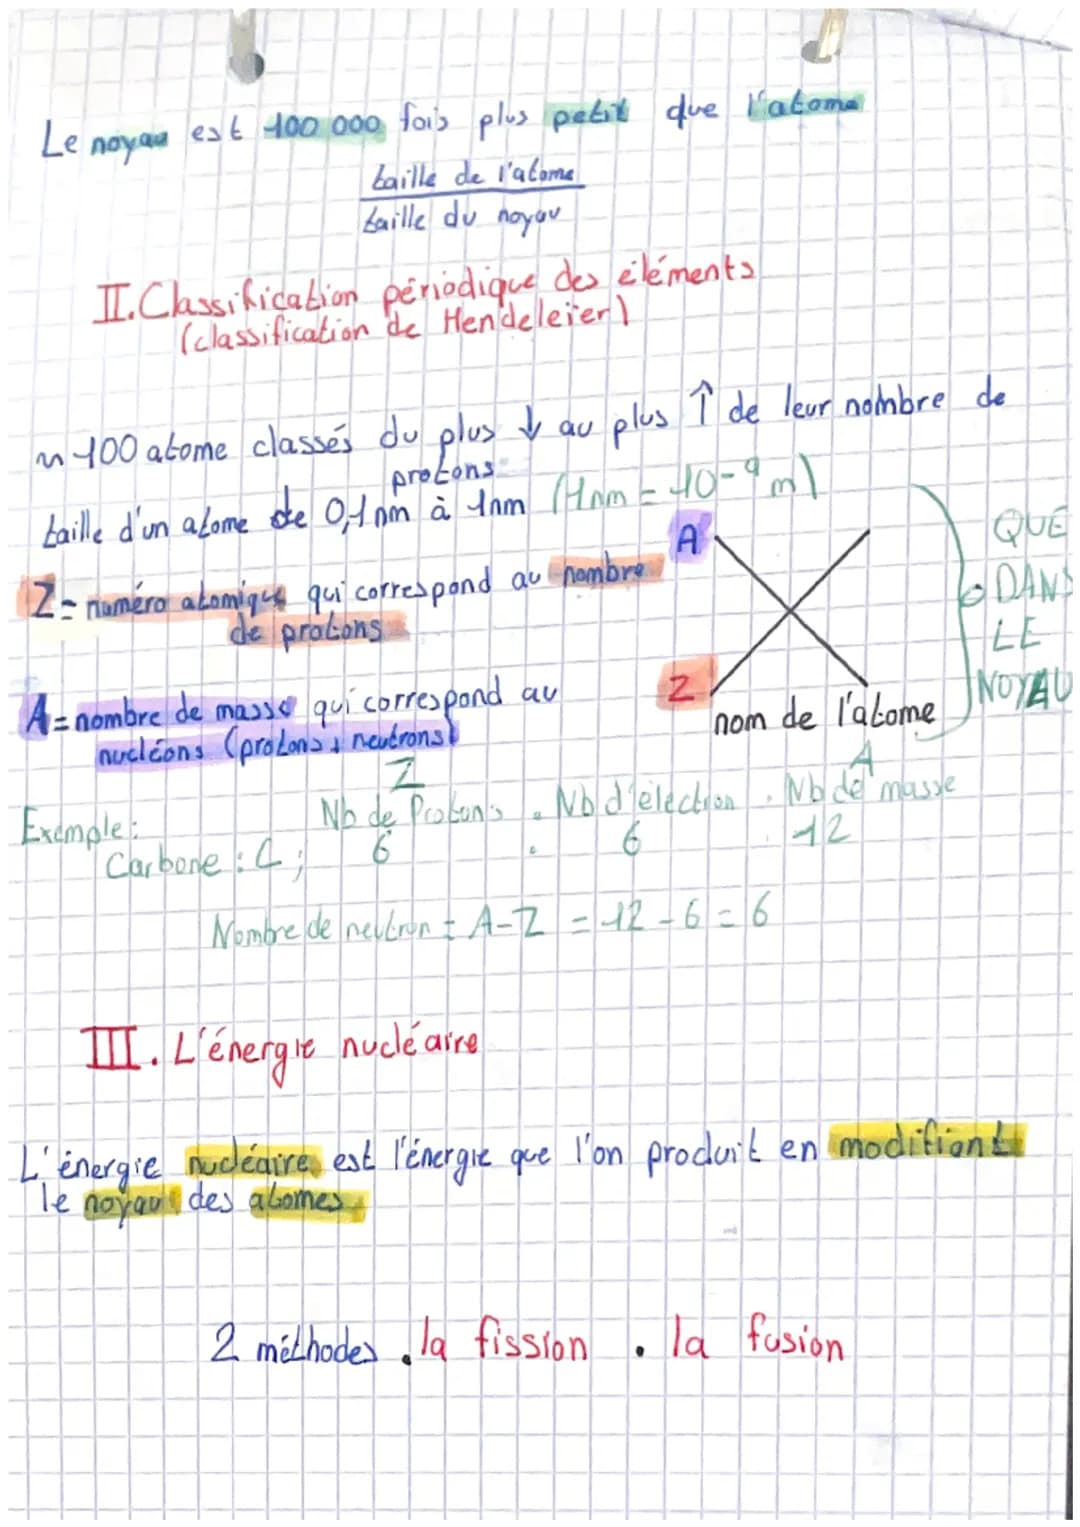 Le noyau est 100 000 fois plus petit que l'atome
taille de l'atome
taille du noyau
II. Classification périodique des éléments
(classification de Hendeleïer)
~ 100 atome classés du plus ↓ au plus ↑ de leur nombre de
protons
taille d'un atome de 0,1 nm à 1nm (1nm = 10-9 m)
Z = numéro atomique qui correspond au nombre
de protons
A = nombre de masse qui correspond au
nucléons (protons + neutrons)
A
Z
nom de l'atome
QUE
DANS
LE
NOYAU
Z A
Exemple: Nb de Protons . Nb d'électron . Nb de masse
Carbone : C ; 6 . 6 . 12
Nombre de neutron = A-Z = 12 - 6 = 6
III. L'énergie nucléaire
L'énergie nucléaire est l'énergie que l'on produit en modifiant
le noyau des atomes
2 méthodes . la fission . la fusion